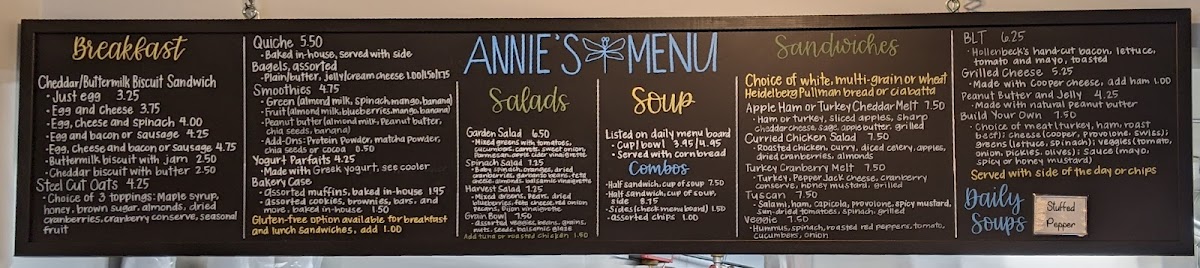 Breakfast
Cheddar/Buttermilk Biscuit Sandwich
• Just egg 3.25
• Egg and Cheese 3.75
• Egg, cheese and spinach 4.00
• Egg and bacon or sausage 4.25
• Egg, Cheese and bacon or Sausage 4.75
• Buttermilk biscuit with jam 2.50
• Cheddar biscuit with butter 2.50
Steel Cut Oats 4.25
• Choice of 3 toppings: Maple syrup,
honey, brown sugar, almonds, dried
cranberries, cranberry conserve, seasonal
fruit
Quiche 5.50
• Baked in-house, served with side
Bagels, assorted
• Plain/butter, jelly/cream cheese 1.00/1.50/1.75
Smoothies 4.75
• Green (almond milk, spinach, mango, banana)
• Fruit (almond milk, blueberries, mango, banana)
• Peanut butter (almond milk, Peanut butter,
chia seeds, banana)
• Add-Ons: Protein powder, matcha powder,
chia seeds or cocoa 0.50
Yogurt Parfaits 4.25
• Made with Greek yogurt, see cooler
Bakery Case
• Assorted muffins, baked in-house 1.95
• Assorted cookies, brownies, bars, and
more, baked in-house 1.50
Gluten-free option available for breakfast
and lunch sandwiches, add 1.00
ANNIE'S MENU
Salads
Garden Salad 6.50
• Mixed greens with tomatoes,
cucumbers, carrots, sweet onion,
Parmesan, apple cider vinaigrette
Spinach Salad 7.25
• Baby spinach, oranges, dried
cranberries, garbanzo beans, feta
cheese, almonds, balsamic vinaigrette
Harvest Salad 7.25
• Mixed greens, pears, dried
blueberries, feta cheese, red onion,
pecans, Dijon vinaigrette
Grain Bowl 7.50
• Assorted veggies, beans, grains,
nuts, seeds, balsamic glaze
Add tuna or roasted chicken 1.50
Soup
Listed on daily menu board
• Cup/bowl 3.95/4.95
• Served with cornbread
Combos
• Half sandwich, cup of soup 7.50
• Half sandwich, cup of soup,
side 8.75
• Sides (check menu board) 1.50
• Assorted chips 1.00
Sandwiches
Choice of white, multi-grain or wheat
Heidelberg Pullman bread or ciabatta
Apple Ham or Turkey Cheddar Melt 7.50
• Ham or turkey, sliced apples, sharp
cheddar cheese, sage, apple butter, grilled
Curried Chicken Salad 7.50
• Roasted chicken, curry, diced celery, apples,
dried cranberries, almonds
Turkey Cranberry Melt 7.50
• Turkey, Pepper Jack Cheese, cranberry
conserve, honey mustard, grilled
Tuscan 7.50
• Salami, ham, capicola, provolone, spicy mustard,
sun-dried tomatoes, spinach, grilled
Veggie 7.50
• Hummus, spinach, roasted red peppers, tomato,
cucumbers, onion
BLT 6.25
• Hollenbeck's hand-cut bacon, lettuce,
tomato and mayo, toasted
Grilled Cheese 5.25
• Made with Cooper cheese, add ham 1.00
Peanut Butter and Jelly 4.25
• Made with natural peanut butter
Build Your Own 7.50
• Choice of meat (turkey, ham, roast
beef); cheese (Cooper, provolone, Swiss);
greens (lettuce, spinach); veggies (tomato,
onion, pickles, olives); sauce (mayo,
spicy or honey mustard)
Served with side of the day or chips
Daily
Soups
Stuffed
Pepper